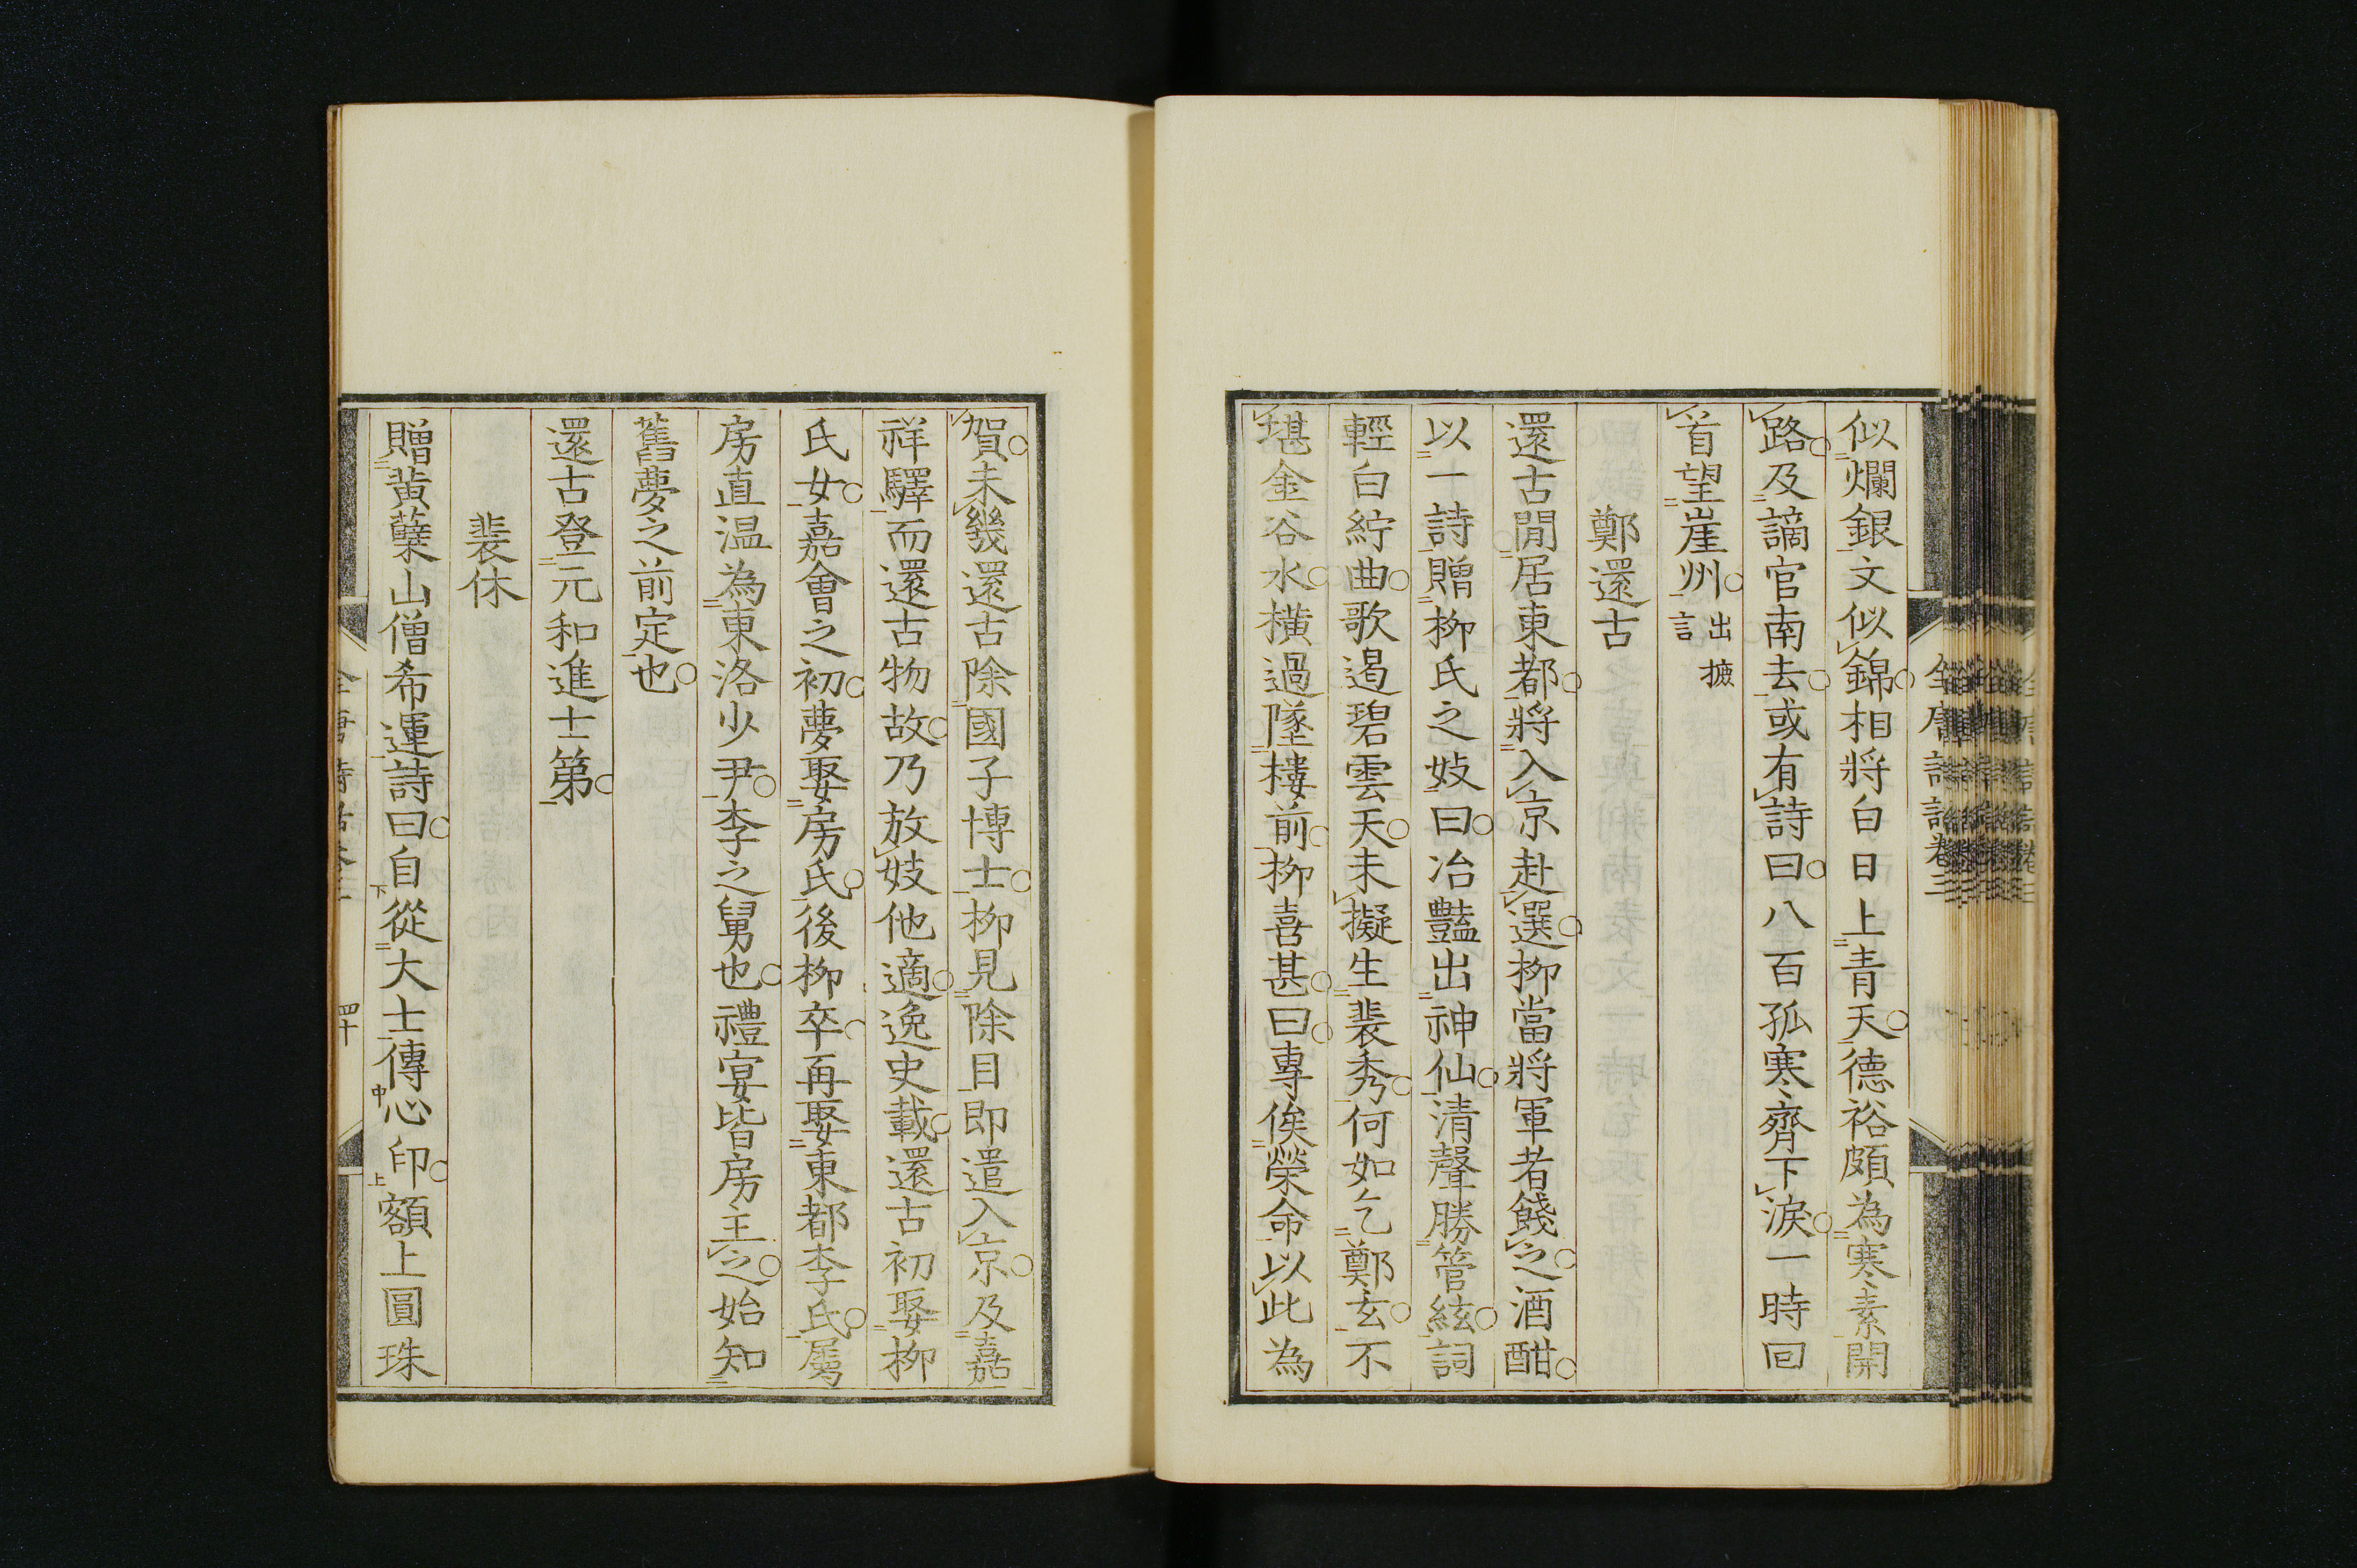 似爛銀文似錦相將白日上青天德裕頗為寒素開
路及謫官南去或有詩曰八百孤寒齊下淚一時回
首望崖州出摭
言
鄭還古
還古閒居東都將入京赴選柳當將軍者餞之酒酣
以一詩贈柳氏之妓曰冶豔出神仙清聲勝管絃詞
輕白紵曲歌遏碧雲天未擬生裴秀何如乞鄭玄不
堪金谷水橫過墜樓前柳喜甚曰專俟榮命以此為
賀未幾還古除國子博士柳見除目即遣入京及嘉
祥驛而還古物故乃放妓他適逸史載還古初娶柳
氏女嘉會之初夢娶房氏後柳卒再娶東都李氏屬
房直温為東洛少尹李之舅也禮宴皆房主之始知
舊夢之前定也
還古登元和進士第
裴休
贈黃蘗山僧希運詩曰自從大士傳心印額上圓珠